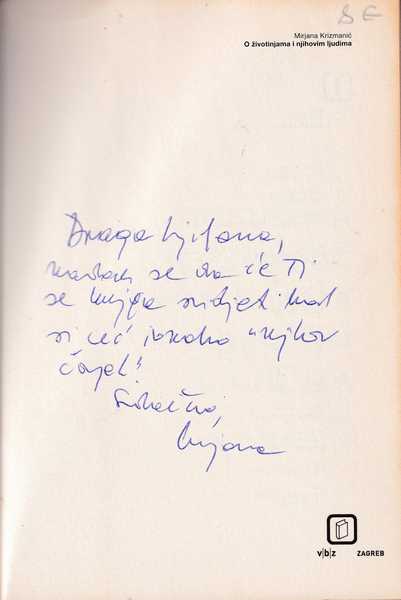 BE
Mirjana Krizmanić
O životinjama i njihovim ljudima
Draga Ljiljana,
nadam se da će Ti
se knjiga svidjeti kad
si već "njihov
čovjek"
Srdačno,
Mirjana
v|b|z ZAGREB